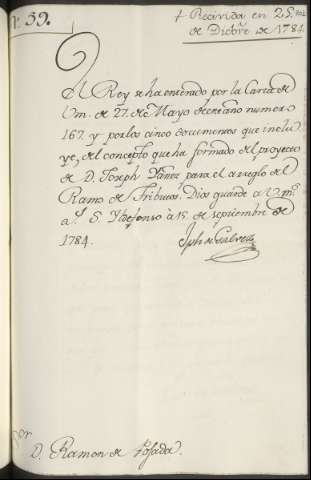 N. 39.
+ Recivida en 25.
de Diciẽre de 1784.
El Rey se ha enterado por la Carta de
Vm. de 27. de Mayo de este año numero
167. y por los cinco documentos que inclu
ye, del concepto que ha formado del proyecto
de D. Joseph Yañez para el arreglo del
Ramo de Tributos. Dios guarde a Vm.
a.s S. Yldefonso à 15 de septiembre de
1784.
Jph de Galvez
Sor
D. Ramon de Posada.